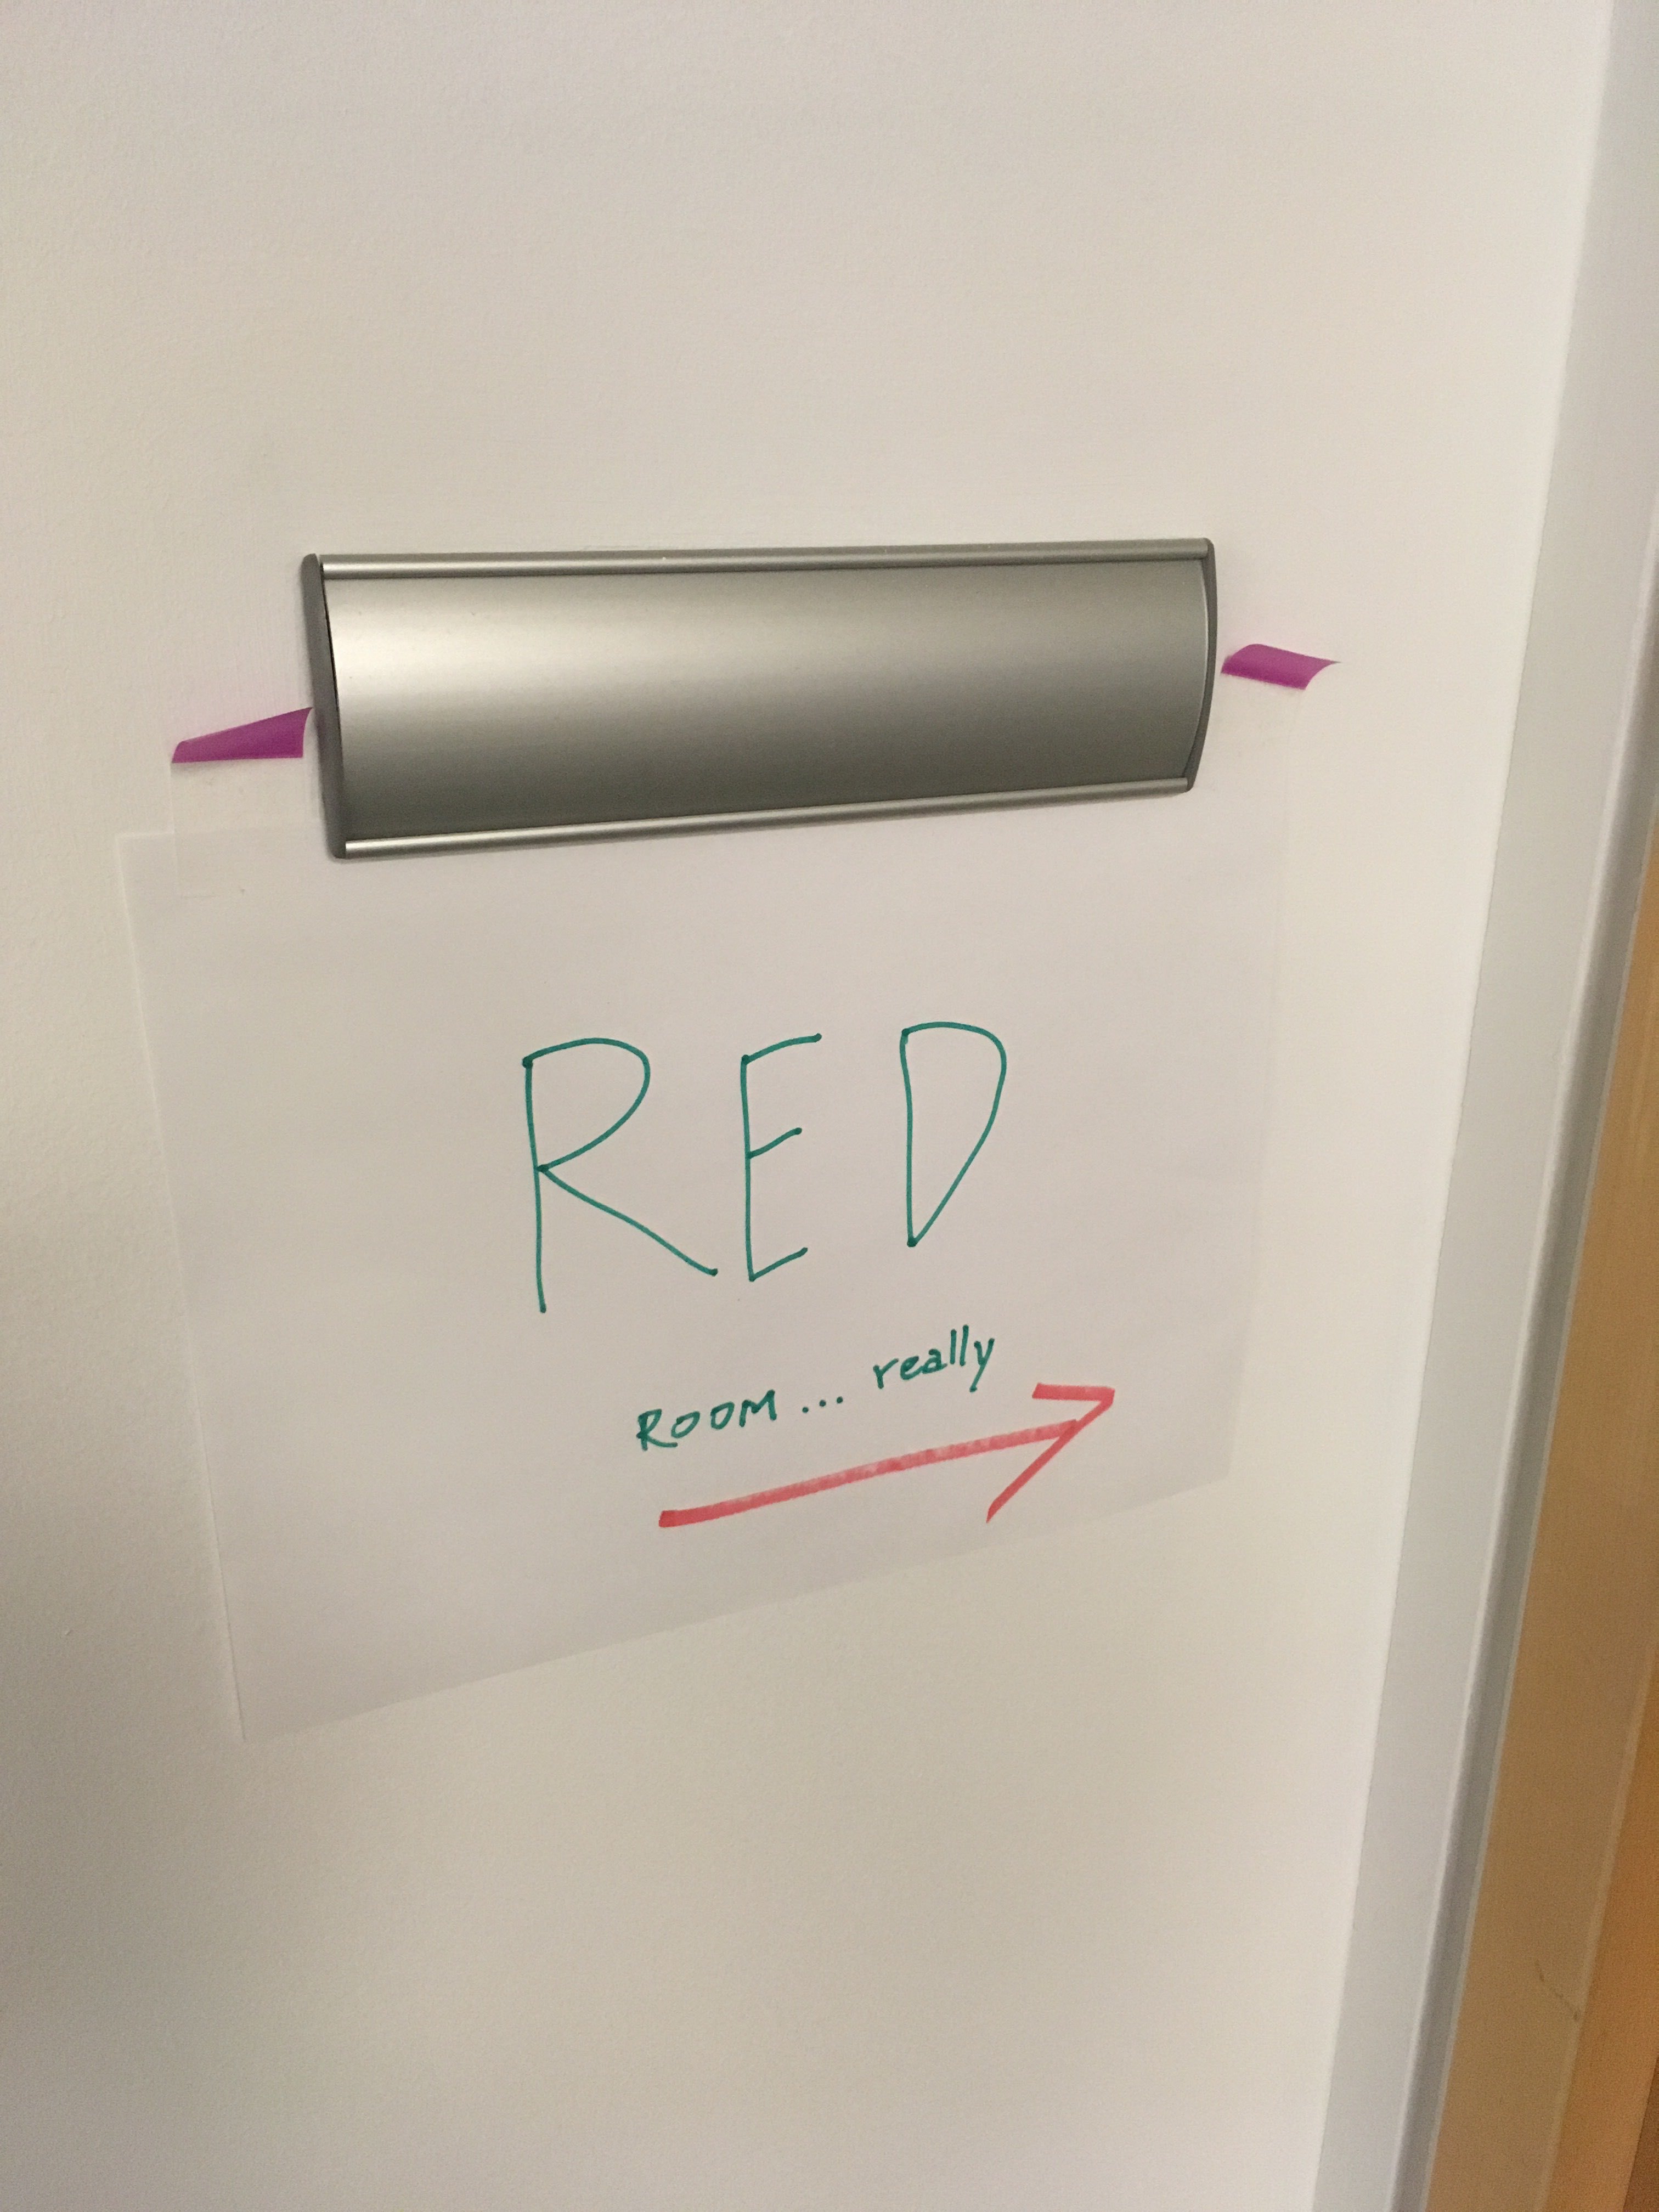 RED
ROOM... really